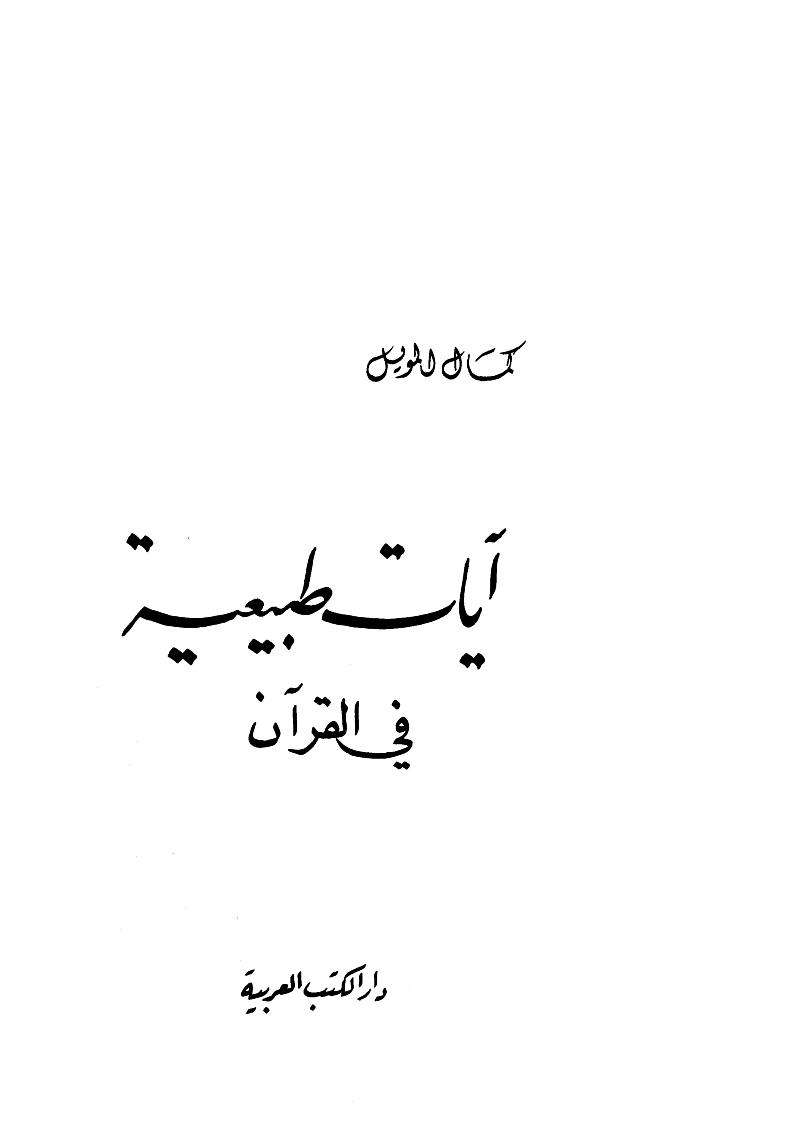 كمال المويل
آيات طبيعية
في القرآن
دار الكتب العربية